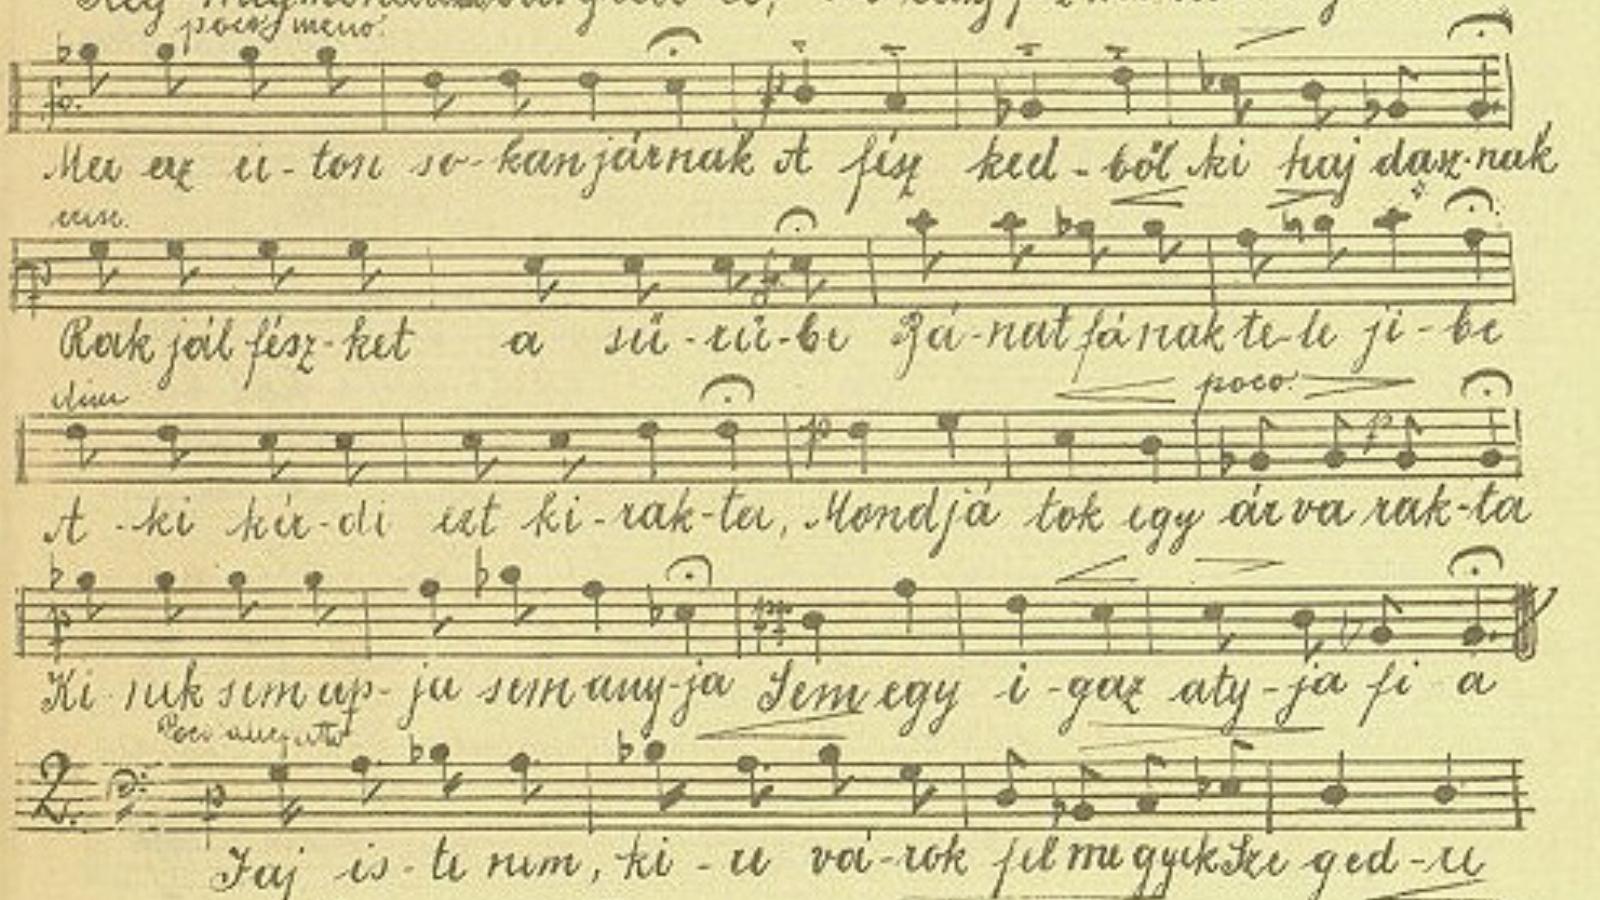 poco meno.
Mer ez ú-ton so-kan járnak A fész ked-ből ki haj dasz-nak
Rak jál fész-ket a sű-rű-be Zá-nat fá nak te-te ji-be
A-ki kér-di ezt ki-rak-ta, Mond já tok egy ár va rak-ta
poco.
Ki nek sem ap-ja sem any-ja Sem egy i-gaz aty-ja fi a
2.
Jaj is-te nem, ki-re vá-rok fel me gyek Sze ged-re